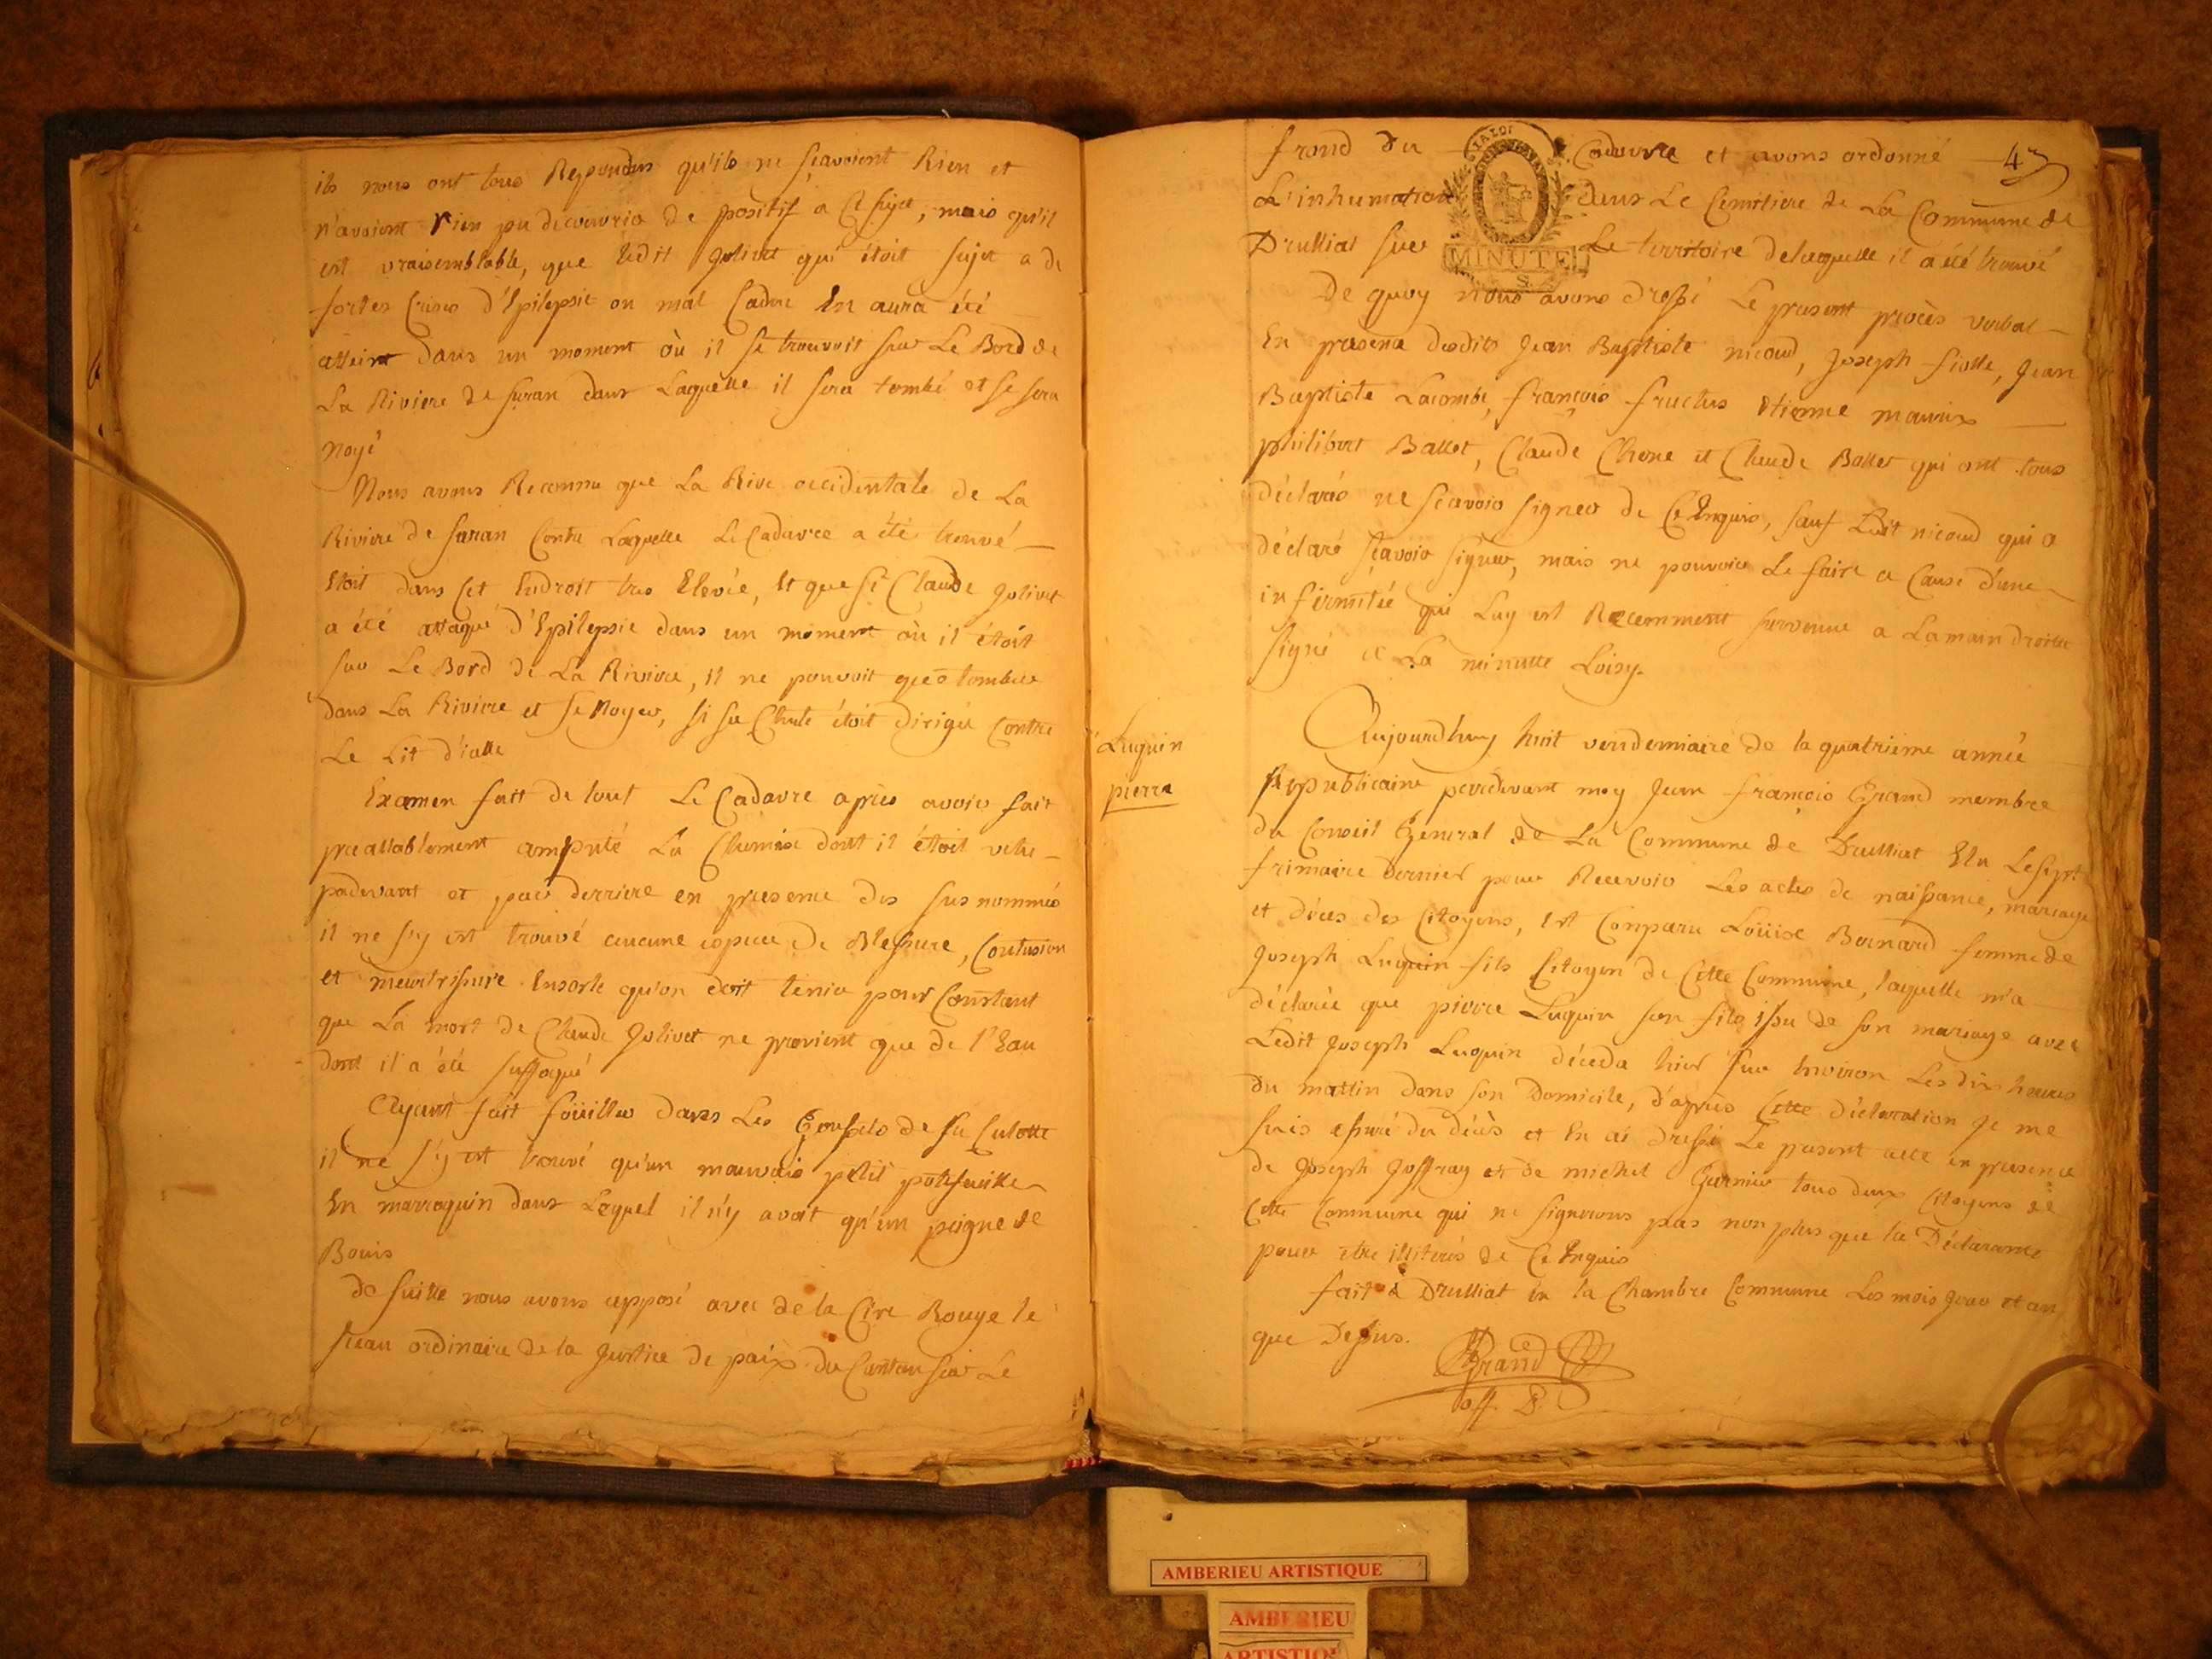 ils nous ont tous Repondus qu'ils ne sçavoient Rien et
n'avoient rien pu decouvrir de positif a ce sujet, mais qu'il
est vraisemblable, que ledit Jolivet qui étoit sujet a de
fortes Crises d'Epilepsie ou mal Caduc En aura été
atteint dans un moment où il se trouvoit sur Le Bord de
La Riviere de suran dans Laquelle il sera tombé et se sera
noyé
Nous avons Reconnu que La Rive occidentale de La
Riviere de suran Contre Laquelle Le Cadavre a été trouvé
Etoit dans cet Endroit tres Elevée, Et que si Claude Jolivet
a été attaqué d'Epilepsie dans un moment où il étoit
sur Le Bord de La Riviere, il ne pouvoit que tomber
dans La Riviere et se Noyer, si sa Chute étoit dirigée Contre
Le Lit d'icelle
Examen fait de tout Le Cadavre après avoir fait
preallablement amputé La Chemise dont il étoit vetu
padevant et par derriere en presence des susnommés
il ne s'y est trouvé aucune espece de Blessure, Contusion
et meurtrissure Ensorte qu'on doit tenir pour Constant
que La mort de Claude Jolivet ne provient que de l'Eau
dont il a été suffoqué
Ayant fait foüiller dans Les Goussets de sa Culotte
il ne s'y est trouvé qu'un mauvais petit portefeuille
En marroquin dans Lequel il n'y avoit qu'un peigne de
Bouis
de suitte nous avons apposé avec de la Cire Rouge le
sceau ordinaire de la Justice de paix du Canton sur Le
43
frond du Cadavre et avons ordonné
L'inhumation dans Le Cimetiere de La Commune de
Drulliat sur Le territoire delaquelle il a été trouvé
LA LOI
MINUTE
S
De quoy nous avons dressé Le present procès verbal
En presence desdits Jean Baptiste nicoud, Joseph fiolle, Jean
Baptiste Lacombe, françois fructus Etienne
philibert Ballet, Claude Chene et Claude Ballet qui ont tous
déclarés ne sçavoir signer de Ce Enquis, sauf Ledit nicoud qui a
déclaré sçavoir signer, mais ne pouvoir Le faire a Cause d'une
infirmitée qui Luy est Recemment survenue a Lamain droitte
signé a La minutte Loisy.
Luquin
pierre
Aujourdhuy huit vendemiaire de la quatrieme année
Republicaine pardevant moy Jean françois Grand membre
du Conseil General de La Commune de Drulliat Elu Lesept
frimaire dernier pour Recevoir Les actes de naissance, mariage
et décès des Citoyens, Est Comparu Loüise Bernard femme de
Joseph Luquin fils Citoyen de Cette Commune, laquelle m'a
déclarée que pierre Luquin son fils issu de son mariage avec
Ledit Joseph Luquin déceda hier sur Environ Les dix heures
du mattin dans son Domicile, d'après Cette déclaration Je me
suis assuré du décès et En ai dressé Le present acte en presence
de Joseph Joffray et de michel Garnier tous deux Citoyens de
Cette Commune qui ne signerons pas non plus que la Déclarante
pour etre illiterés de Ce Enquis
fait a Drulliat En la Chambre Commune Les mois Jour et an
que Dessus.
Grand
off. P.
AMBERIEU ARTISTIQUE
AMBERIEU
ARTISTIQUE